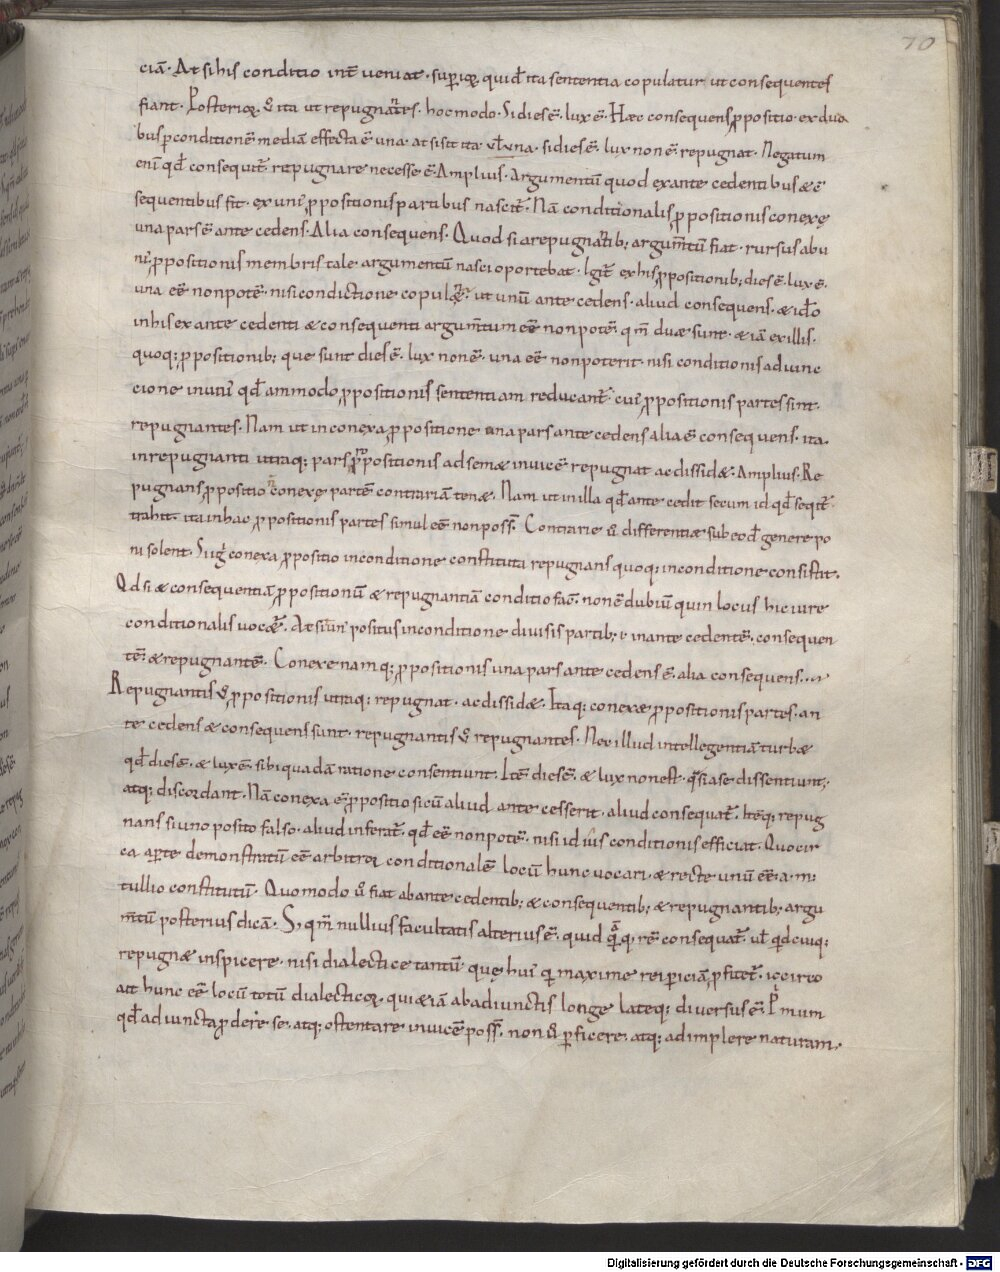 70
ciā. At si his conditio int̄ veniat. superiorꝝ quidē ita sententia copulatur ut consequentes
fiant. Posteriorꝝ ū ita ut repugnantes. hoc modo. Si dies ē. lux ē. Hæc consequens ꝓpositio ex dua
bus ꝑ conditionē mediā effecta ē una. at si sit ita vł una. si dies ē. lux non ē. repugnat. Negatum
enī qđ consequit̄. repugnare necesse ē. Amplius. Argumentū quod ex ante cedentibus & c̄
sequentibus fit. ex unı' ꝓpositionis partibus nascit̄. Nā conditionalis ꝓpositionis conexę
una pars ē ante cedens. Alia consequens. Quod si a repugnantib; argum̄tū fiat. rursus ab u
nı' ꝓpositionis membris tale argumentū nasci oportebat. Igit̄ ex his ꝓpositionib; dies ē. lux ē.
una eē non potē. nisi condictione copulet̄. ut unū ante cedens. aliud consequens. & idō
in his ex ante cedenti & consequenti argum̄tum eē non potē. qm̄ duæ sunt. & iā ex illis.
quoq; ꝓpositionib; que sunt dies ē. lux non ē. una eē non poterit. nisi conditionis adiunc
cione in unı' qđammodo ꝓpositionis sententiam reducant̄. cuı' ꝓpositionis partes sint.
repugnantes. Nam ut in conexa ꝓpositione una pars ante cedens alia ē consequens. ita.
in repugnanti utraq; pars ꝓpositionis ad sem& invicē repugnat ac dissid&. Amplius. Re
pugnans ꝓpositio conexę partē contrariam ten&. Nam ut in illa qđ ante cedit secum id qđ seqt̄
trahit. ita in hac ꝓpositionis partes simul eē non poss̄. Contrarie ū differentiæ sub eođ genere po
ni solent. Si iḡ conexa ꝓpositio in conditione constituta repugnans quoq; in conditione consistit.
Qđ si & consequentiā ꝓpositionū & repugnantiā conditio fac̄. non ē dubiū quin locus hic iure
conditionalis voc&̄. At si unı' positus in conditione divisis partib; in ante cedentē. consequen
tē. & repugnantē. Conexe namq; ꝓpositionis una pars ante cedens ē. alia consequens.
Repugnantis ū ꝓpositionis utraq; repugnat. ac dissid&. Itaq; conexæ ꝓpositionis partes. an
te cedens & consequens sunt. repugnantis ū repugnantes. Nec illud intellegentiā turb&
qđ dies ē. & lux ē. sibi quadā ratione consentiunt. Itē dies ē. & lux non est. quasi a se dissentiunt.
atq; discordant. Nā conexa ē ꝓpositio si cū aliud ante cesserit. aliud consequat̄. Itēq; repug
nans si uno posito falso. aliud inferat̄. qđ eē non potē. nisi id vis conditionis efficiat. Quocir
ca aꝑte demonstratū eē arbitror conditionalē locū hunc vocari. & recte unū eē. a. m.
tullio constitutū. Quomodo ū fiat ab ante cedentib; & consequentib; & repugnantib; argu
m̄tū posterius dicā. S; qm̄ nullius facultatis alterius ē. quid quāq; rē consequat̄. vł qđ cuiq;
repugn& inspicere. nisi dialectice tantū. quę huı' maxime rei ꝑiciā ꝓfitet̄. iccirco
ait hunc eē locū totū dialecticorꝝ. qui &iā ab adiunctis longe lateq; diversus ē. P̄mum
qđ adiuncta ꝓdere se. atq; ostentare invicē poss̄. non ū ꝑficere. atq; adimplere naturam.
Digitalisierung gefördert durch die Deutsche Forschungsgemeinschaft - DFG